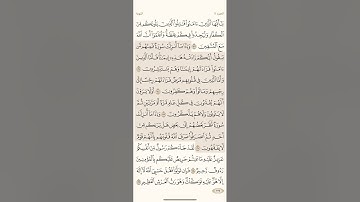 يَٰٓأَيُّهَا ٱلَّذِينَ ءَامَنُوا۟ قَٰتِلُوا۟ ٱلَّذِينَ يَلُونَكُم مِّنَ
ٱلْكُفَّارِ وَلْيَجِدُوا۟ فِيكُمْ غِلْظَةً وَٱعْلَمُوٓا۟ أَنَّ ٱللَّهَ
مَعَ ٱلْمُتَّقِينَ وَإِذَا مَآ أُنزِلَتْ سُورَةٌ فَمِنْهُم مَّن
يَقُولُ أَيُّكُمْ زَادَتْهُ هَٰذِهِۦٓ إِيمَٰنًا فَأَمَّا ٱلَّذِينَ
ءَامَنُوا۟ فَزَادَتْهُمْ إِيمَٰنًا وَهُمْ يَسْتَبْشِرُونَ وَأَمَّا
ٱلَّذِينَ فِى قُلُوبِهِم مَّرَضٌ فَزَادَتْهُمْ رِجْسًا إِلَىٰ
رِجْسِهِمْ وَمَاتُوا۟ وَهُمْ كَٰفِرُونَ أَوَلَا يَرَوْنَ
أَنَّهُمْ يُفْتَنُونَ فِى كُلِّ عَامٍ مَّرَّةً أَوْ مَرَّتَيْنِ ثُمَّ
لَا يَتُوبُونَ وَلَا هُمْ يَذَّكَّرُونَ وَإِذَا مَآ أُنزِلَتْ
سُورَةٌ نَّظَرَ بَعْضُهُمْ إِلَىٰ بَعْضٍ هَلْ يَرَىٰكُم مِّنْ
أَحَدٍ ثُمَّ ٱنصَرَفُوا۟ صَرَفَ ٱللَّهُ قُلُوبَهُم بِأَنَّهُمْ قَوْمٌ
لَّا يَفْقَهُونَ لَقَدْ جَآءَكُمْ رَسُولٌ مِّنْ أَنفُسِكُمْ
عَزِيزٌ عَلَيْهِ مَا عَنِتُّمْ حَرِيصٌ عَلَيْكُم بِٱلْمُؤْمِنِينَ
رَءُوفٌ رَّحِيمٌ فَإِن تَوَلَّوْا۟ فَقُلْ حَسْبِىَ ٱللَّهُ لَآ إِلَٰهَ
إِلَّا هُوَ عَلَيْهِ تَوَكَّلْتُ وَهُوَ رَبُّ ٱلْعَرْشِ ٱلْعَظِيمِ